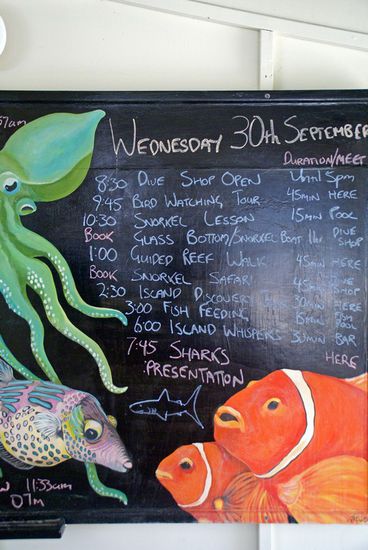 57am
WEDNESDAY 30TH SEPTEMBER
DURATION/MEET
8:30 DIVE SHOP OPEN UNTIL 5PM
9:45 BIRD WATCHING TOUR 45MIN HERE
10:30 SNORKEL LESSON 15MIN POOL
BOOK GLASS BOTTOM/SNORKEL BOAT 1HR DIVE SHOP
1:00 GUIDED REEF WALK 45MIN HERE
BOOK SNORKEL SAFARI DIVE SHOP
2:30 ISLAND DISCOVERY 30MIN HERE
3:00 FISH FEEDING 15MIN POOL
6:00 ISLAND WHISPERS 30MIN BAR
7:45 SHARKS PRESENTATION HERE
11:33am
07m